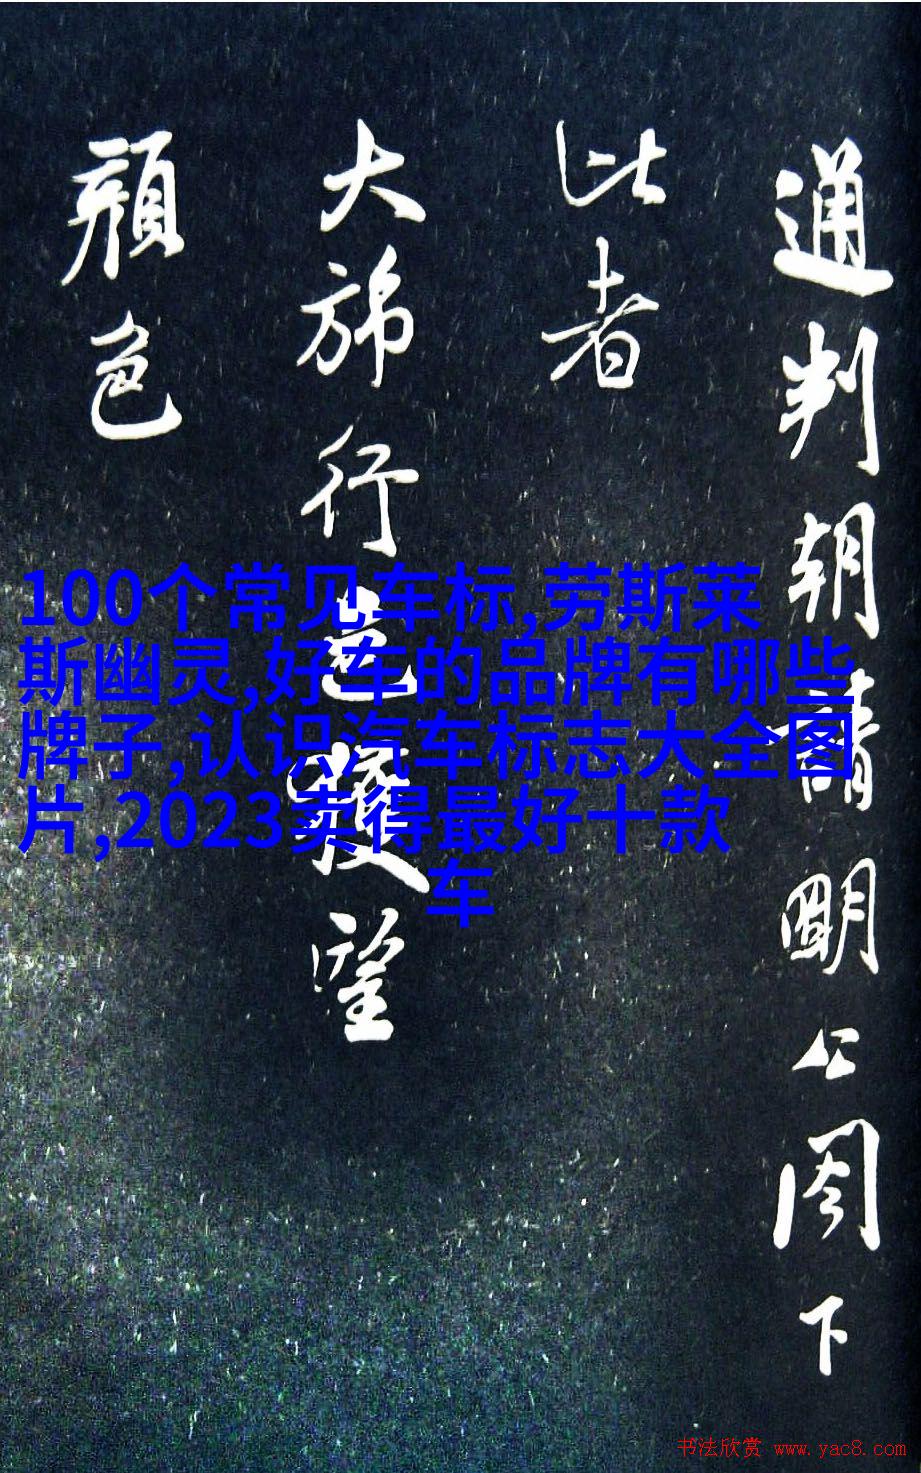 通判朝請明公閣下
此者
大旆行邑獲望
顏色
100个常见车标,劳斯莱
斯幽灵,好车的品牌有哪些
牌子,认识汽车标志大全图
片,2023卖得最好十款
车
书法欣赏 www.yac8.com